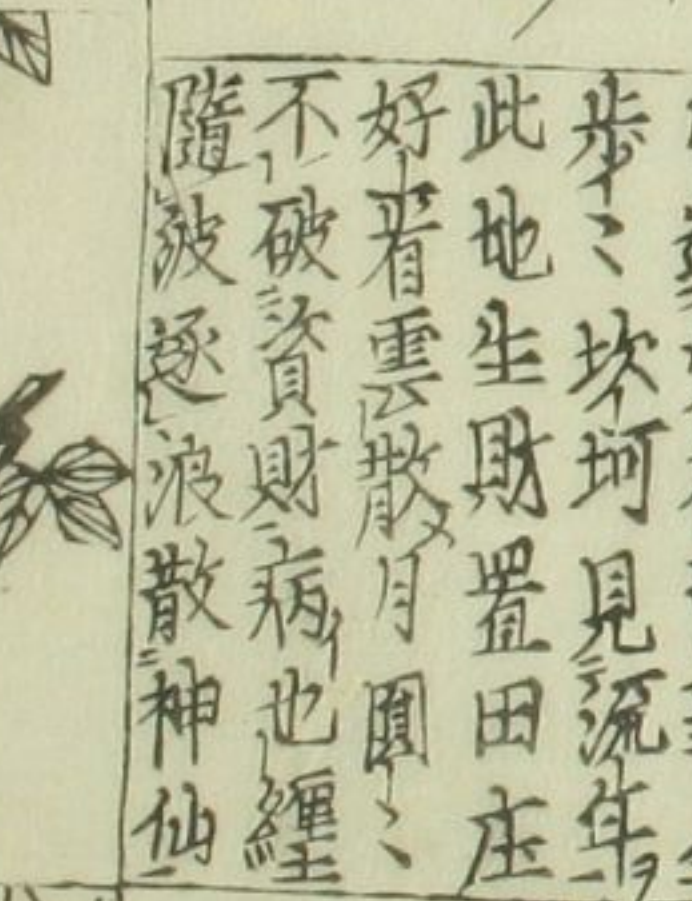 步〻坎坷見流年
此地生財置田庄
好看雲散月圓〻
不破資財病也纏
隨波逐浪散神仙